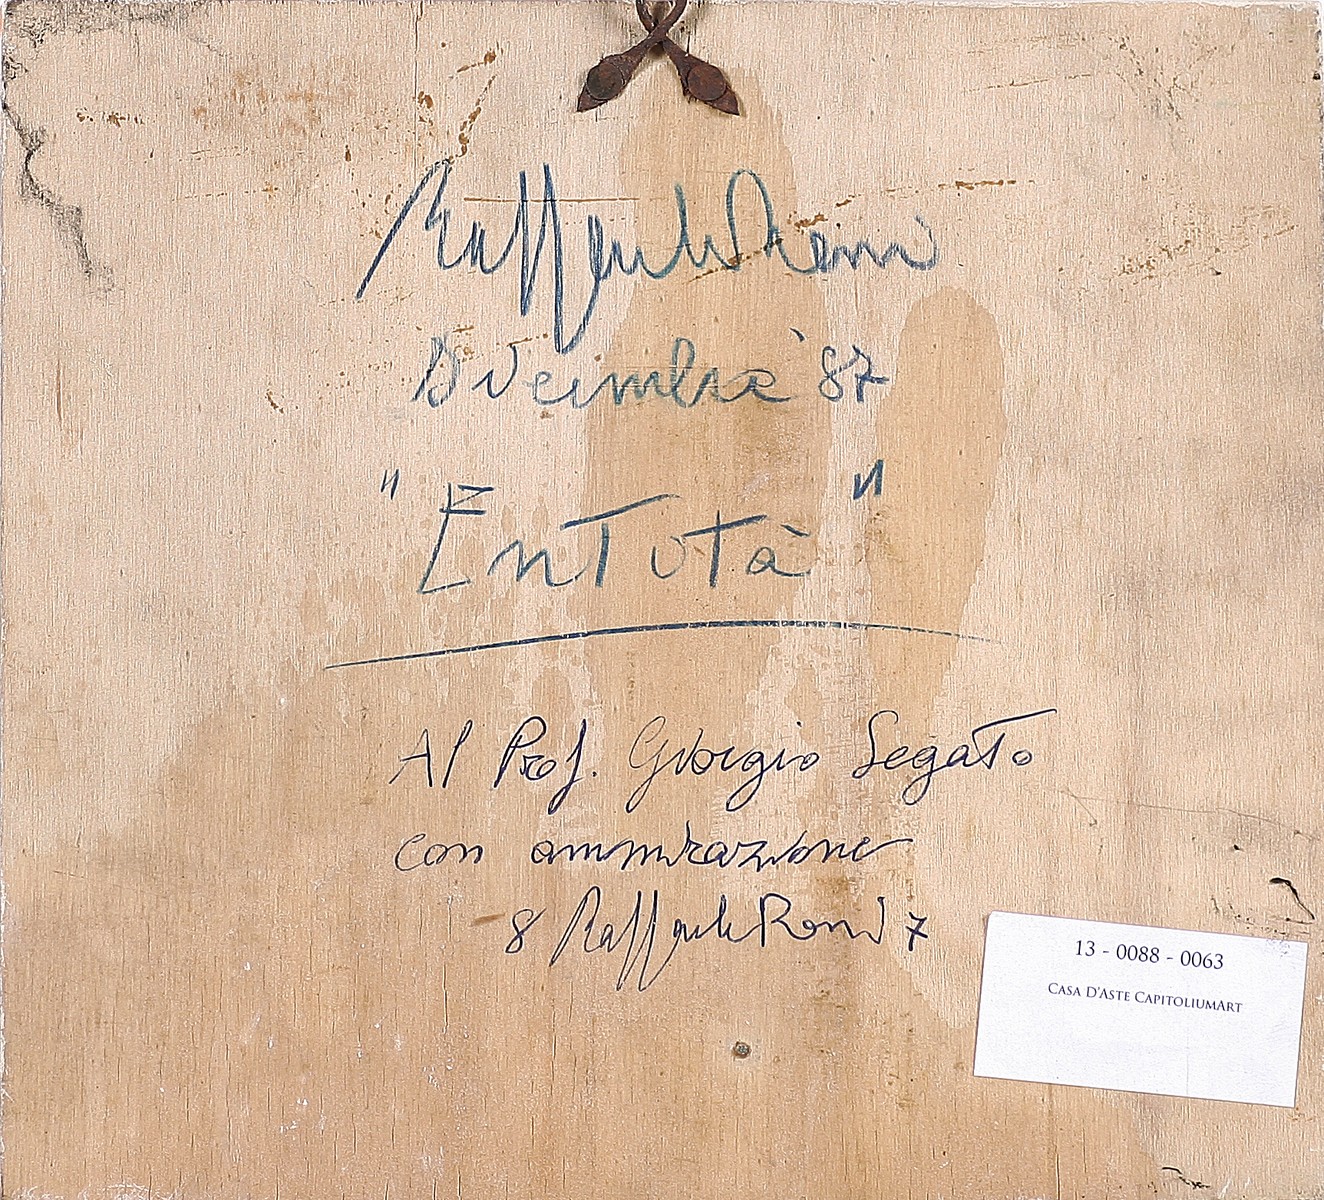 Raffaele Rossi
Dicembre '87
"Entità"
Al Prof. Giorgio Segato
con ammirazione
8 Raffaele Rossi 7
13 - 0088 - 0063
Casa D'Aste CapitoliumArt